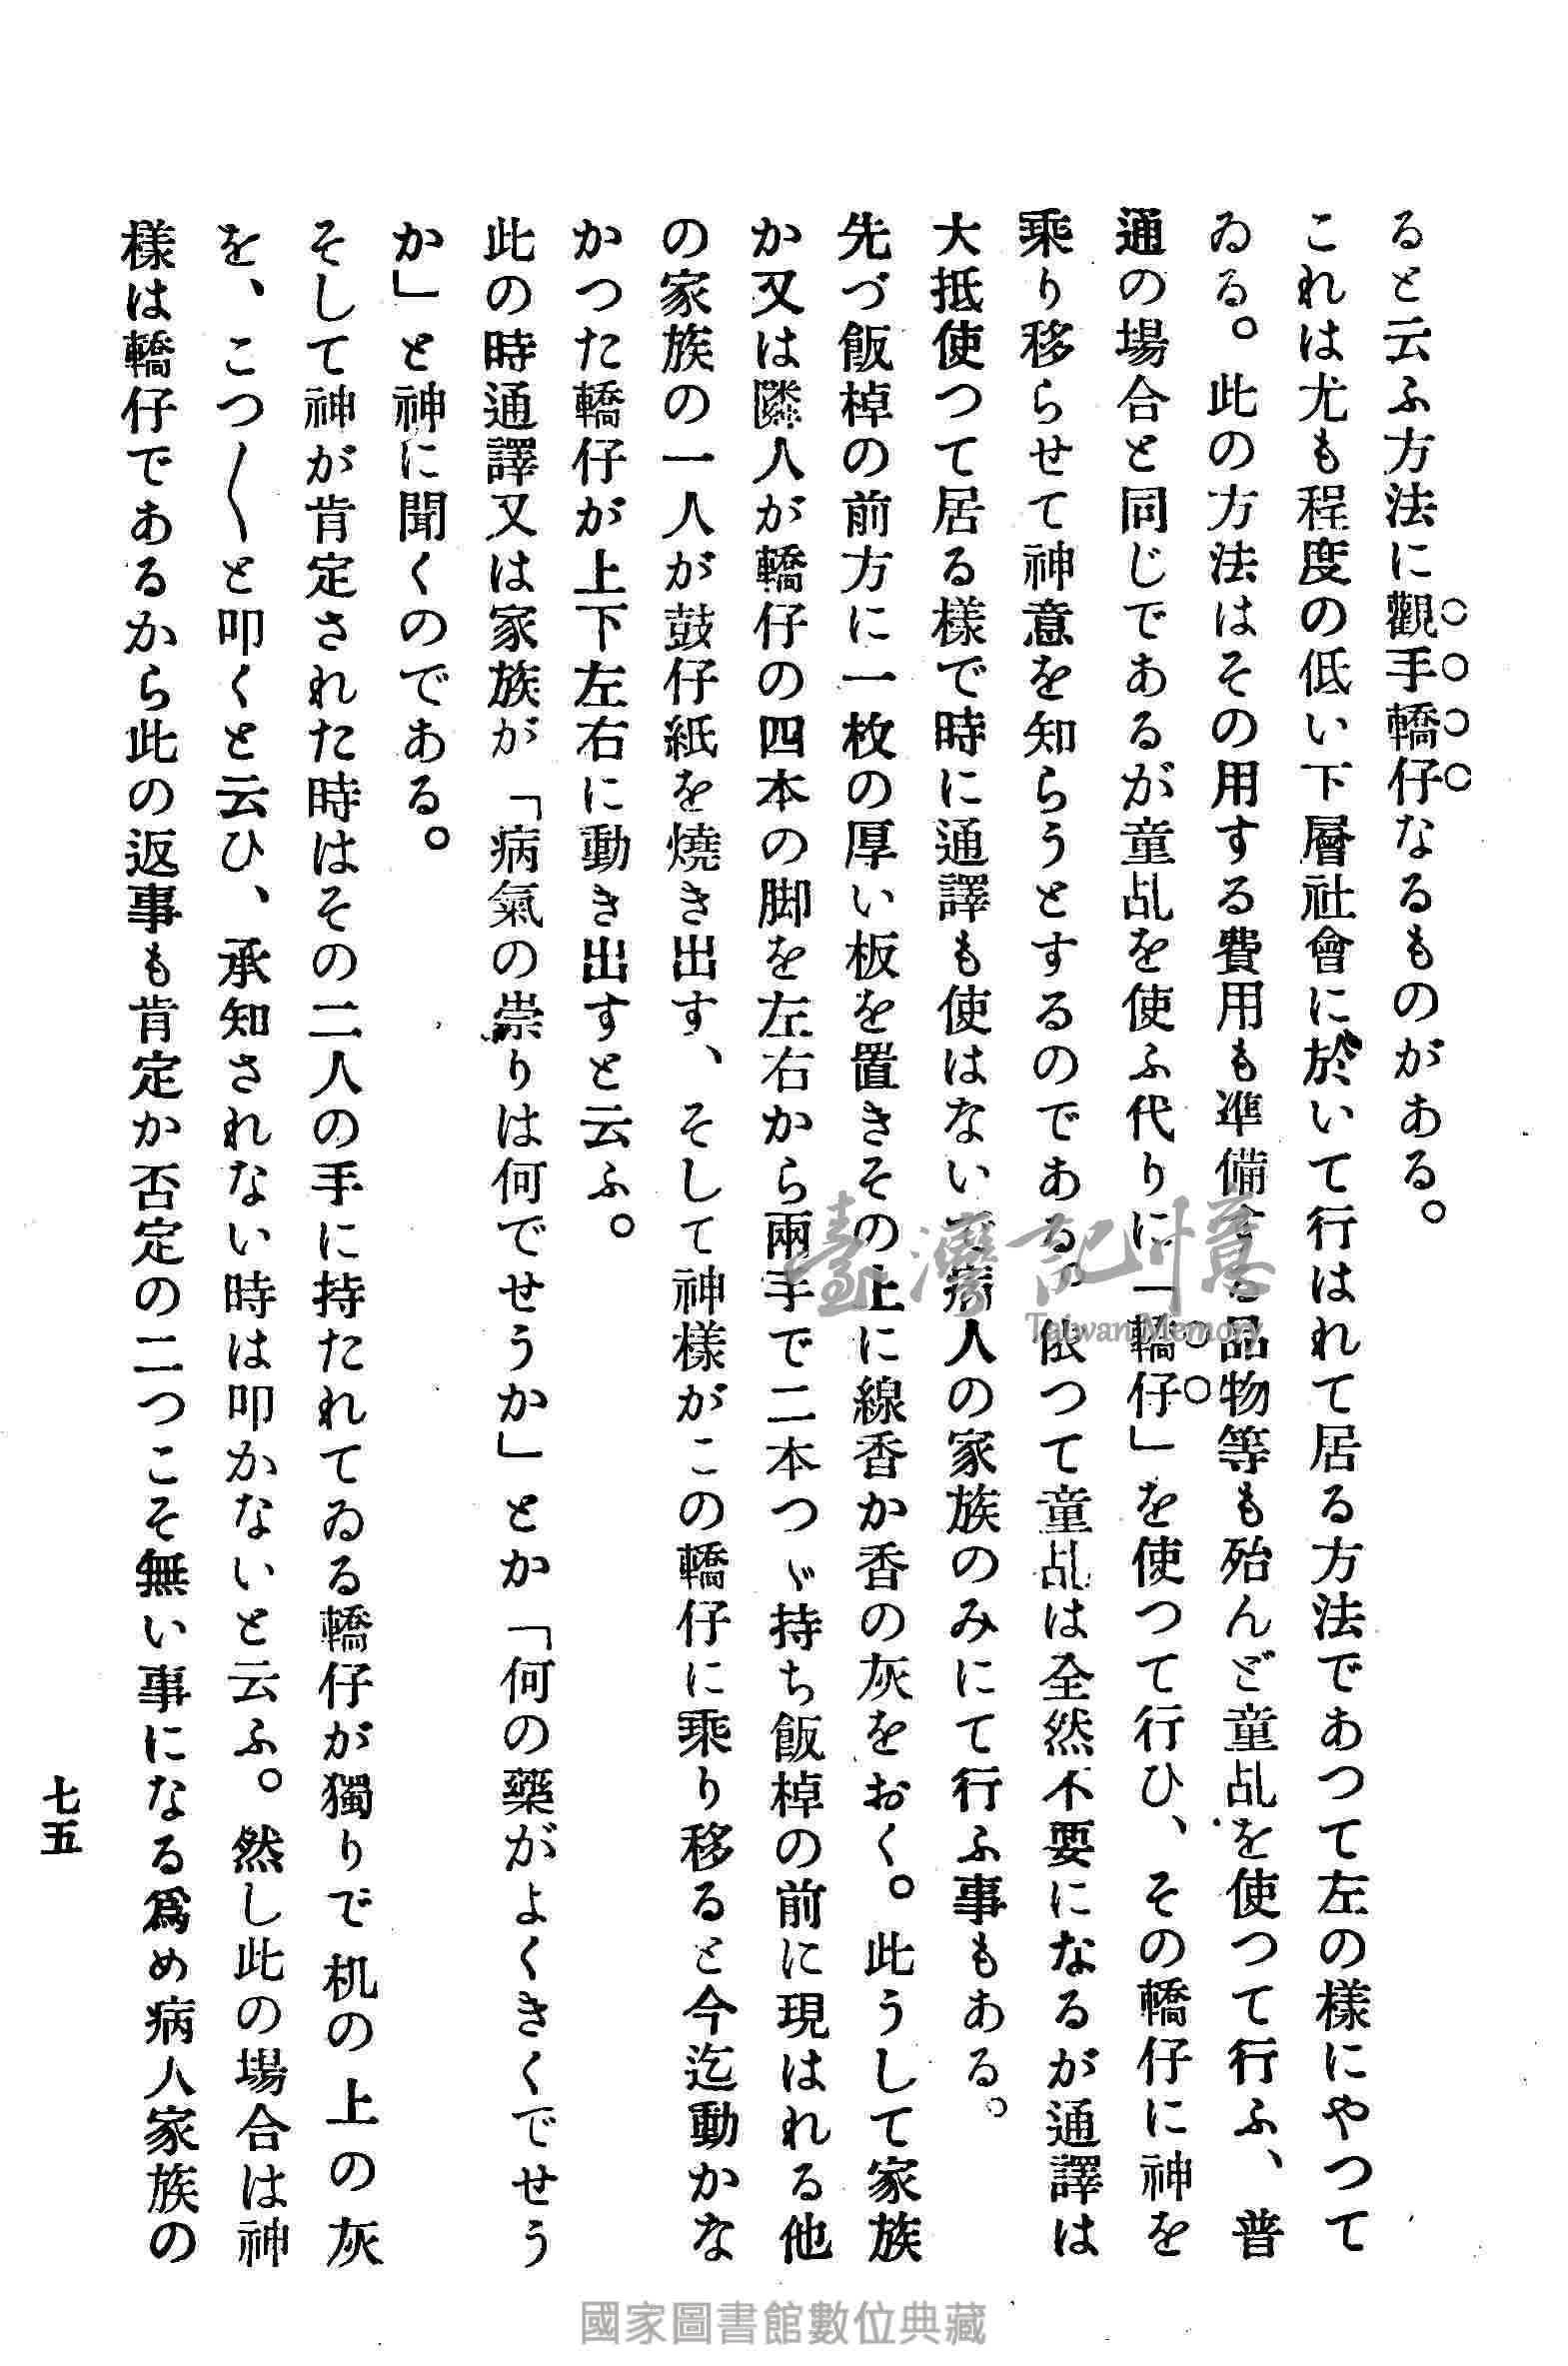 ると云ふ方法に觀手轎仔なるものがある。
これは尤も程度の低い下層社會に於いて行はれて居る方法であつて左の樣にやつて
ゐる。此の方法はその用する費用も準備する品物等も殆んど童乩を使つて行ふ、普
通の場合と同じであるが童乩を使ふ代りに「轎仔」を使つて行ひ、その轎仔に神を
乘り移らせて神意を知らうとするのである。依つて童乩は全然不要になるが通譯は
大抵使つて居る樣で時に通譯も使はないで病人の家族のみにて行ふ事もある。
先づ飯棹の前方に一枚の厚い板を置きその上に線香か香の灰をおく。此うして家族
か又は隣人が轎仔の四本の脚を左右から兩手で二本つゞ持ち飯棹の前に現はれる他
の家族の一人が鼓仔紙を燒き出す、そして神樣がこの轎仔に乘り移ると今迄動かな
かつた轎仔が上下左右に動き出すと云ふ。
此の時通譯又は家族が「病氣の崇りは何でせうか」とか「何の藥がよくきくでせう
か」と神に聞くのである。
そして神が肯定された時はその二人の手に持たれてゐる轎仔が獨りで机の上の灰
を、こつ〱と叩くと云ひ、承知されない時は叩かないと云ふ。然し此の場合は神
樣は轎仔であるから此の返事も肯定か否定の二つこそ無い事になる爲め病人家族の
七五
臺灣記憶
Taiwan Memory
國家圖書館數位典藏